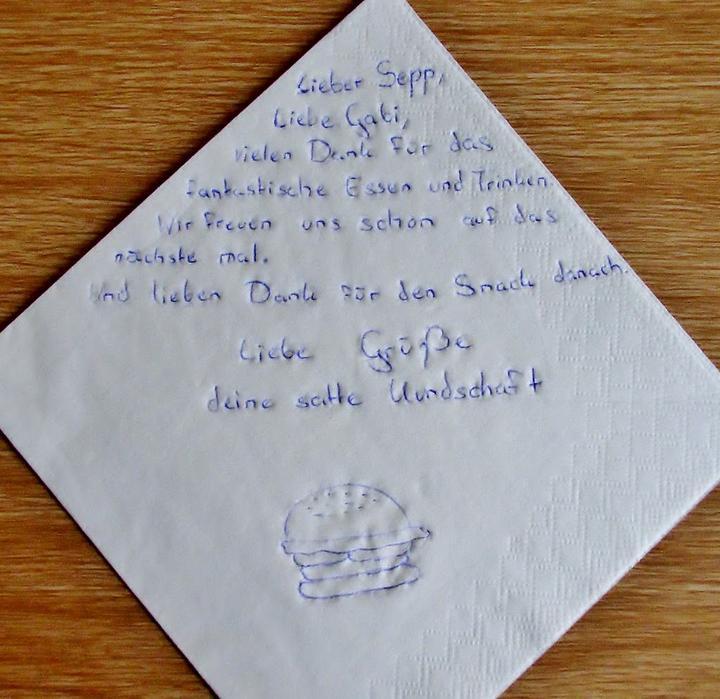 Lieber Sepp,
Liebe Gabi,
vielen Dank für das
fantastische Essen und Trinken.
Wir freuen uns schon auf das
nächste mal.
Und lieben Dank für den Snack danach.
Liebe Grüße
deine satte Kundschaft